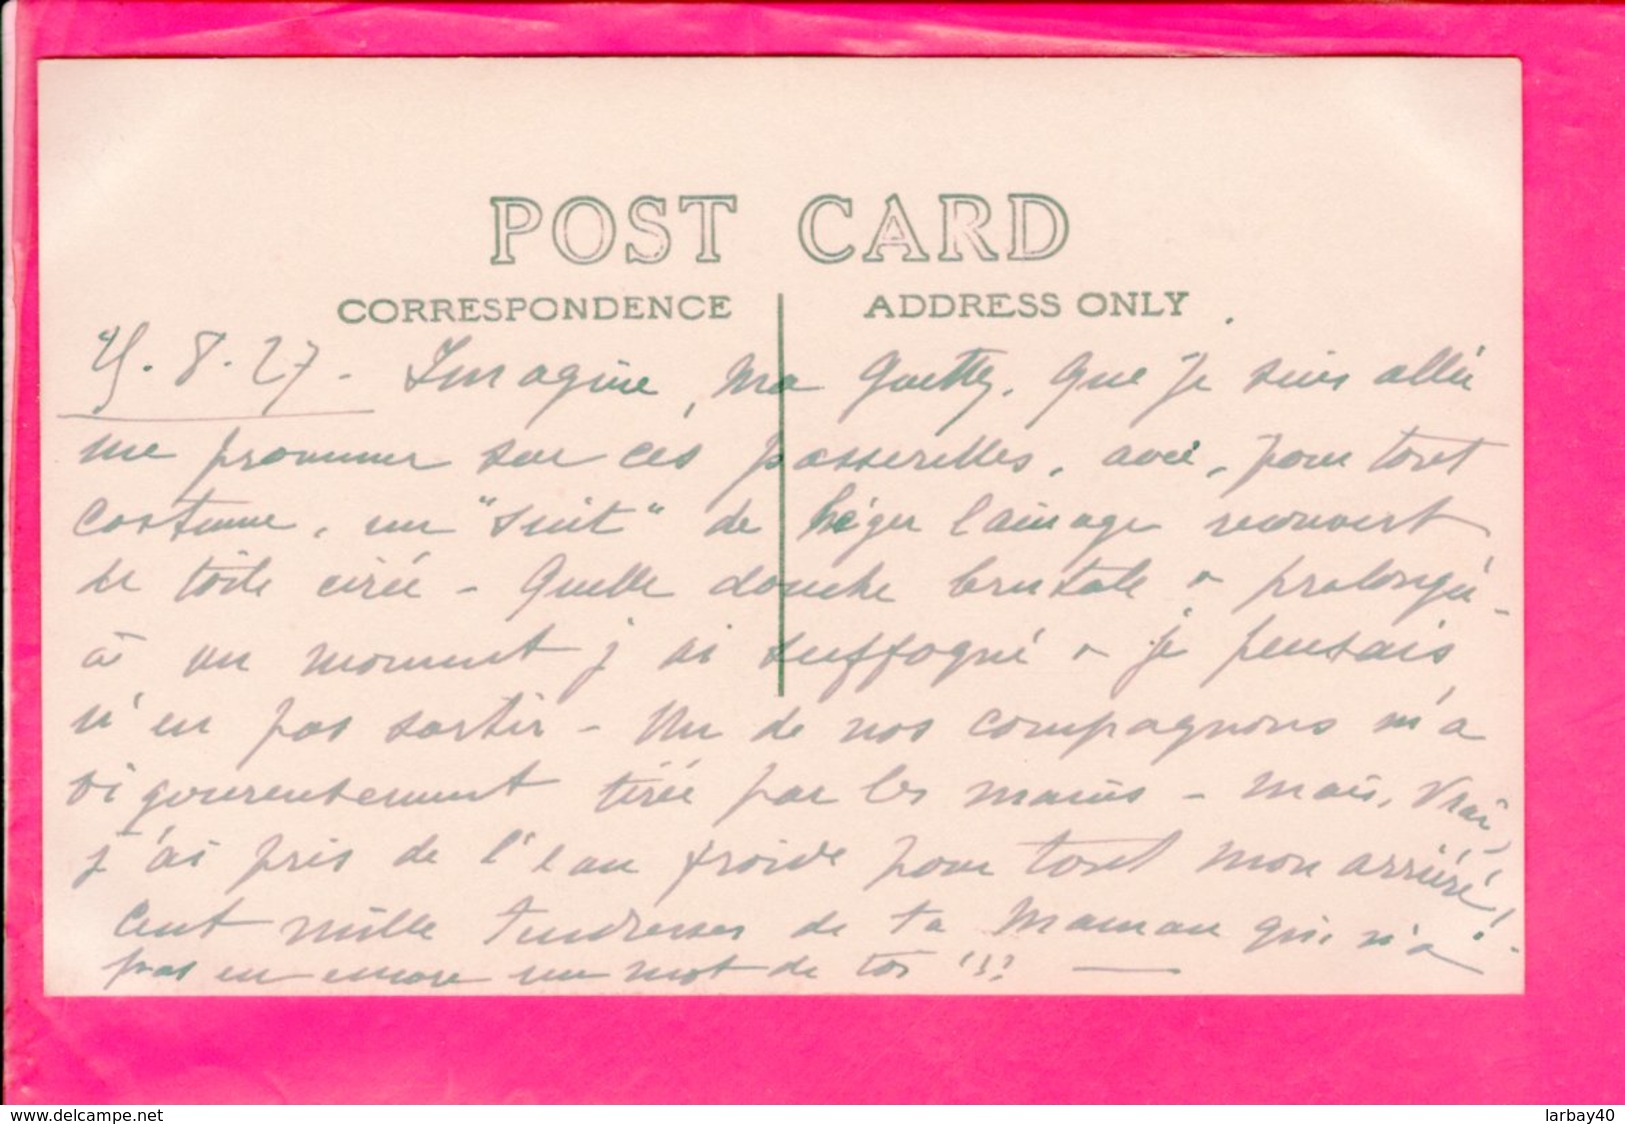 POST CARD
CORRESPONDENCE ADDRESS ONLY
8.27 - Imagine, Ma Guetty, que je suis allée
me promener sur ces passerelles, avec, pour tout
costume, un "suit" de léger lainage recouvert
de toile cirée - Quelle douche brutale & prolongée -
à un moment j'ai suffoqué & je pensais
n'en pas sortir - Un de nos compagnons m'a
vigoureusement tirée par les mains - Mais, vrai,
j'ai pris de l'eau froide pour tout mon arriéré!
Cent mille tendresses de ta Maman qui n'a
pas eu encore un mot de toi !!!
www.delcampe.net larbay40